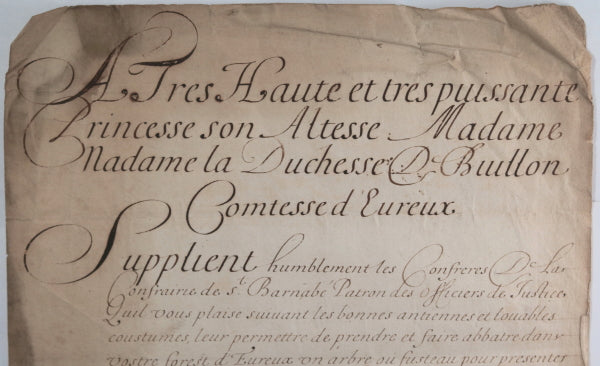 A Tres Haute et tres puissante
Princesse son Altesse Madame
Madame la Duchesse De Buillon
Comtesse d'Eureux.
Supplient humblement les Confreres De La
Confrairie de St. Barnabé Patron des Officiers de Justice,
Quil vous plaise suivant les bonnes antiennes et louables
coustumes, leur permettre de prendre et faire abbatre dans
vostre forest d'Eureux un arbre ou fusteau pour presenter